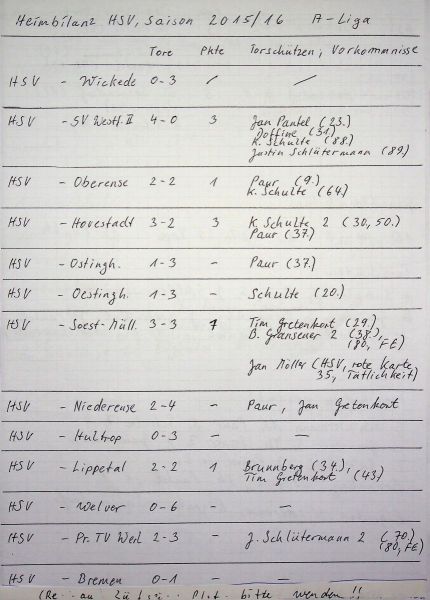 Heimbilanz HSV, Saison 2015/16 A-Liga
Tore Pkte Torschützen, Vorkommnisse
HSV - Wickede 0-3 / —
HSV - SV Westf. II 4-0 3 Jan Pantel (23.)
Doffine (31.)
K. Schulte (88.)
Justin Schlütermann (89.)
HSV - Oberense 2-2 1 Paur (9.)
K. Schulte (64.)
HSV - Hovestadt 3-2 3 K. Schulte 2 (30, 50.)
Paur (37)
HSV - Ostingh. 1-3 - Paur (37.)
HSV - Oestingh. 1-3 - Schulte (20.)
HSV - Soest-Müll. 3-3 1 Tim Gretenkort (29.)
B. Gransener 2 (38.),
(80, FE)
Jan Möller (HSV, rote Karte
35, Tätlichkeit)
HSV - Niederense 2-4 - Paur, Jan Gretenkort
HSV - Hultrop 0-3 - —
HSV - Lippetal 2-2 1 Brunnberg (34.),
Tim Gretenkort (43)
HSV - Welver 0-6 - -
HSV - Pr. TV Werl 2-3 - J. Schlütermann 2 (70.)
(80, FE)
HSV - Bremen 0-1 - -
bitte wenden!!